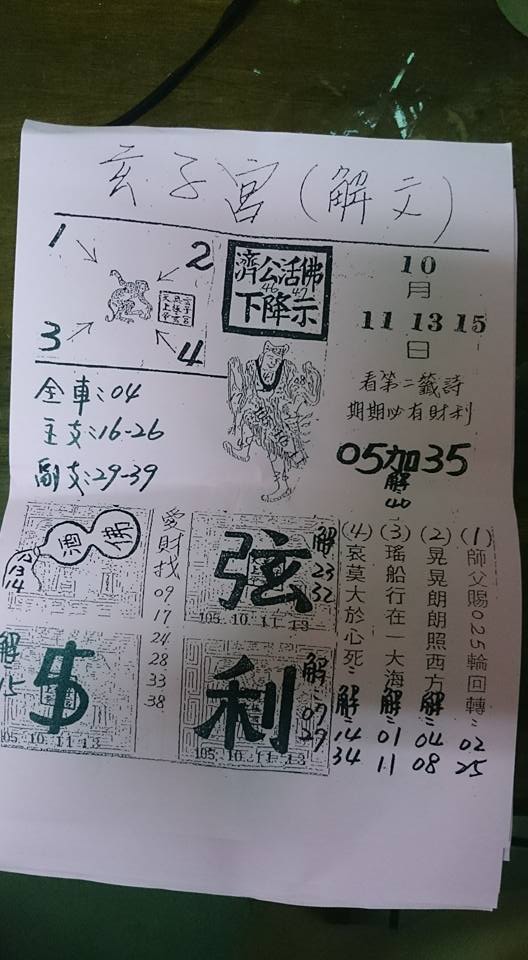 玄子宮(解文)
1
2
3
4
濟公活佛
46 47
下降示
10
月
11 13 15
日
看第二籤詩
期期必有財利
05加35
解
40
全車:04
主支:16-26
副支:29-39
13
14
愛財找
09
17
24
28
33
38
弦
解
23
32
105.10.11.13
$
解
15
05.10.11.13
利
解:
07
29
105.10.11.13
(1)師父賜025輪回轉:02 25
(2)晃晃朗朗照西方 解:04 08
(3)瑤船行在一大海 解:01 11
(4)哀莫大於心死: 解:14 34